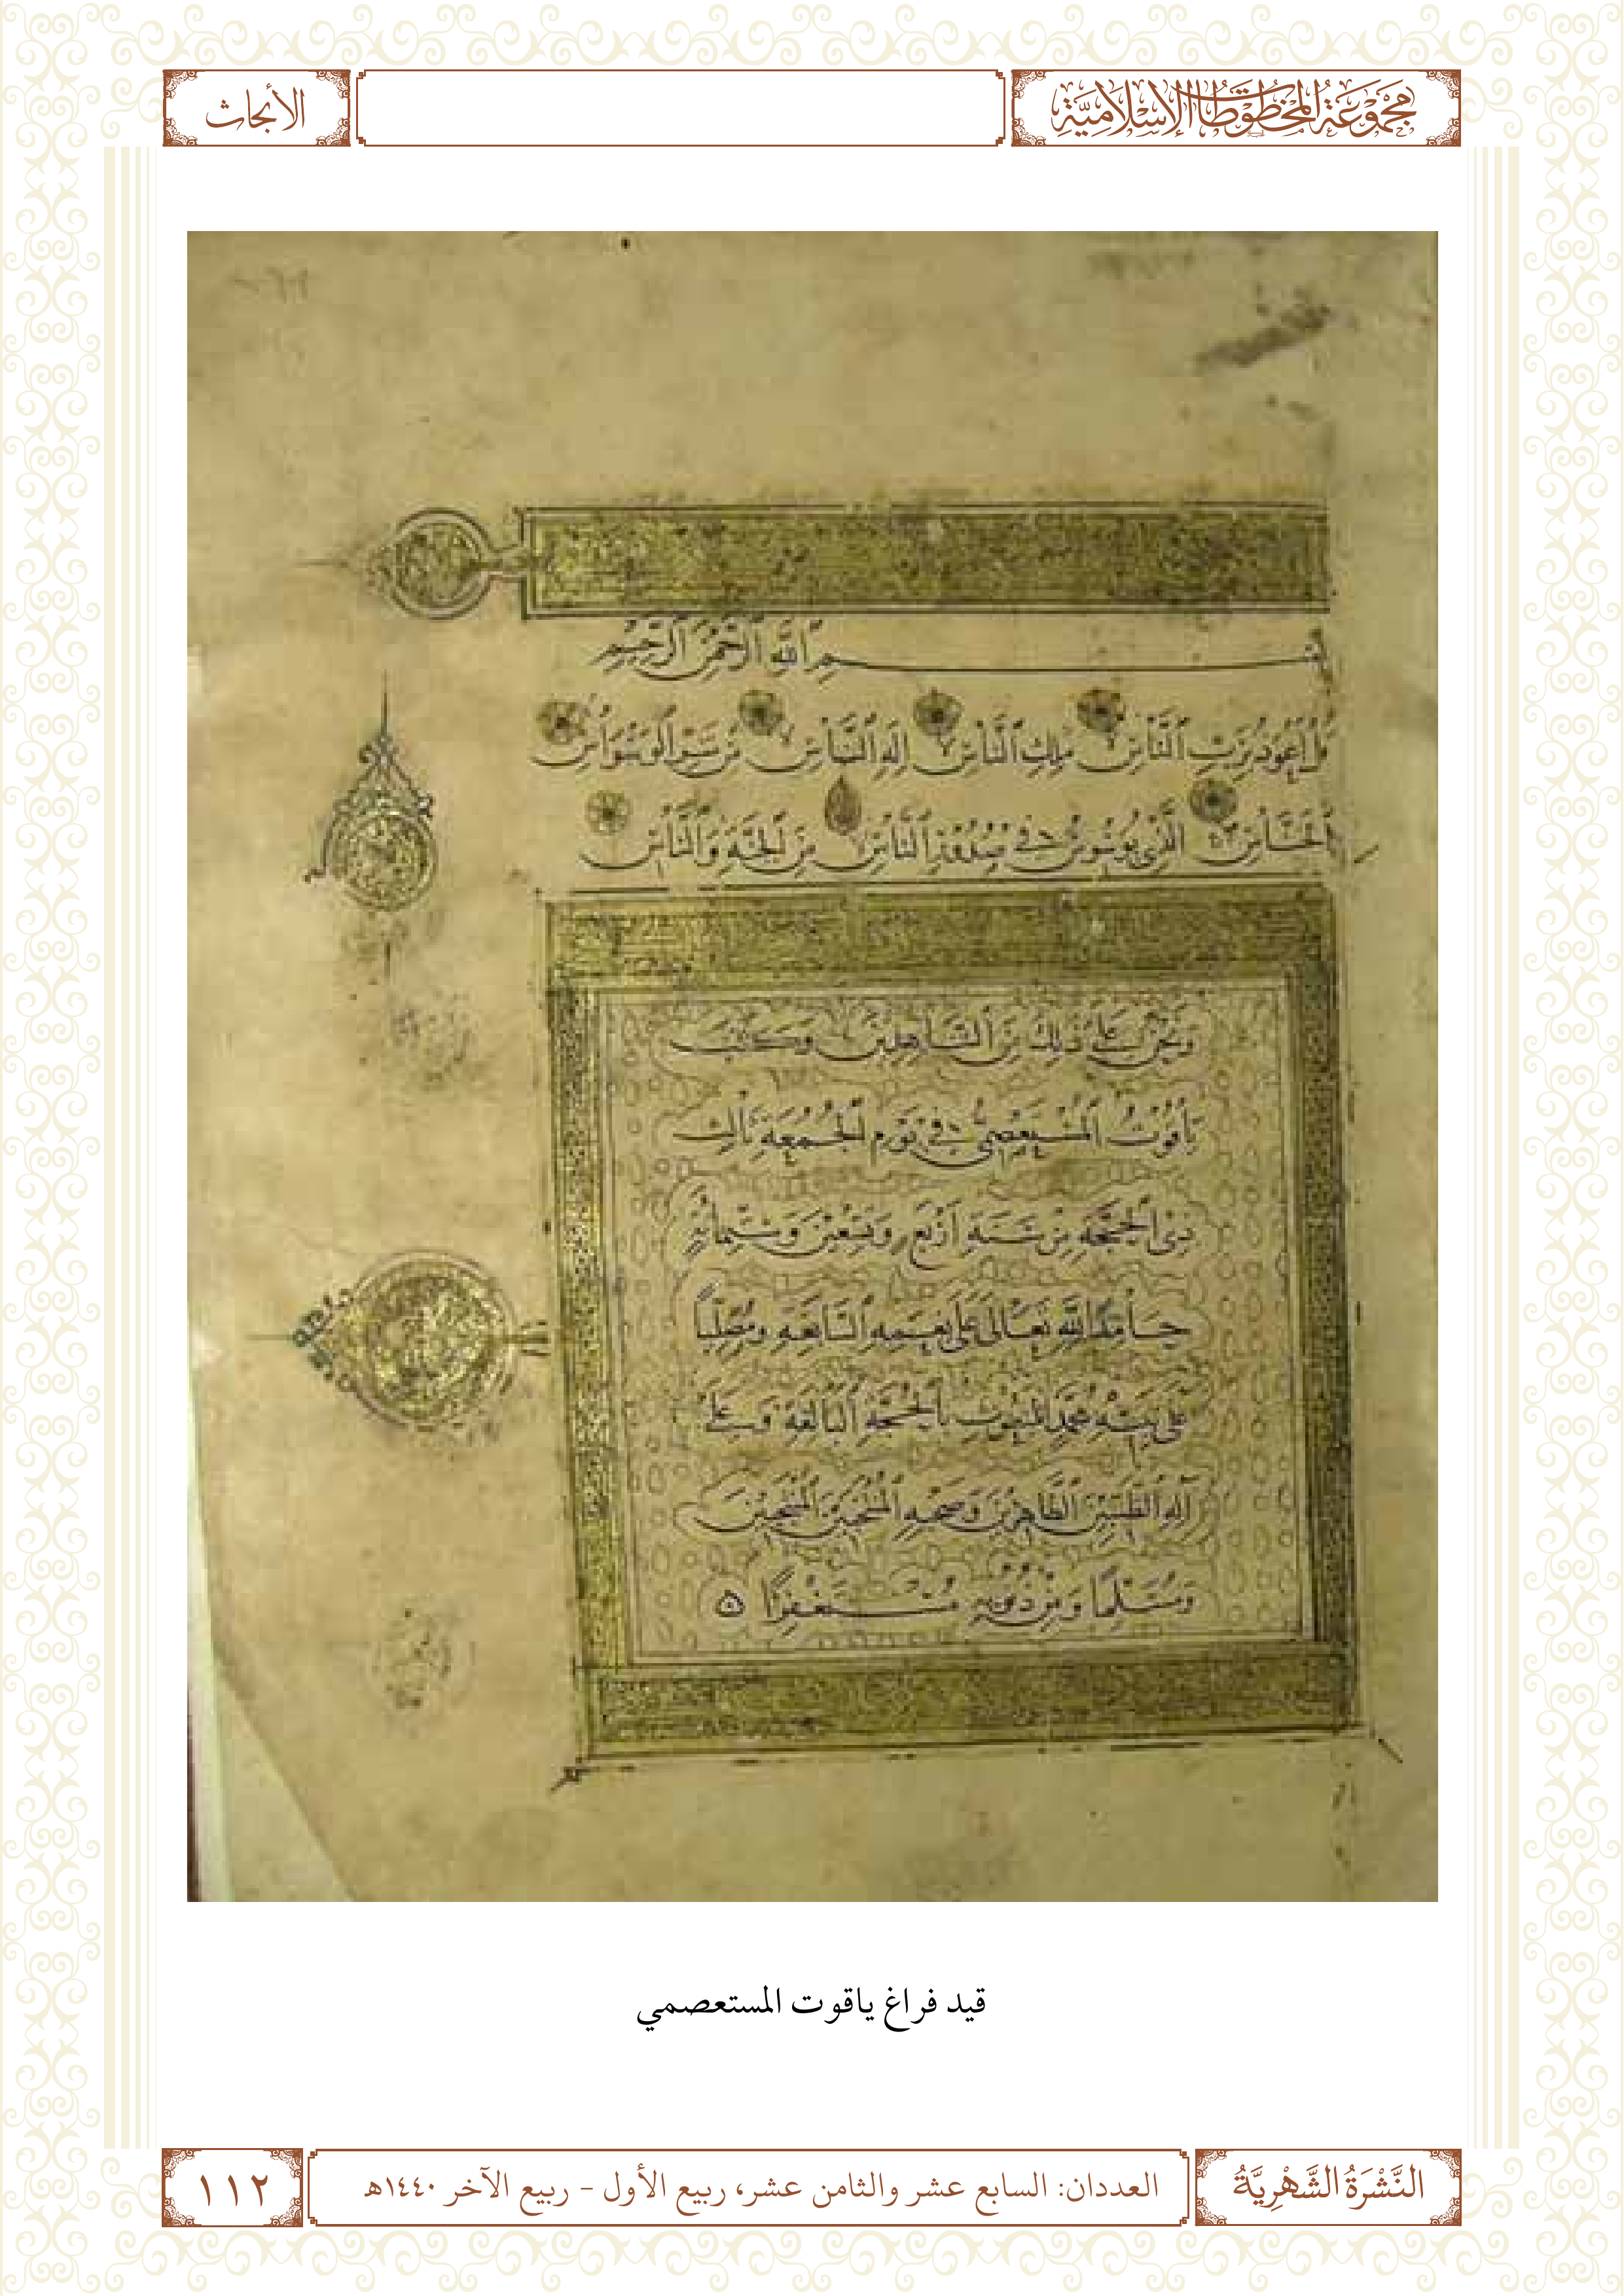 مجموعة المخطوطات الإسلامية
الأبحاث
بسم الله الرحمن الرحيم
قل أعوذ برب الناس ملك الناس إله الناس من شر الوسواس
الخناس الذي يوسوس في صدور الناس من الجنة والناس
ونحن على ذلك من الشاهدين وكتب
ياقوت المستعصمي في يوم الجمعة ثالث
ذي الحجة من سنة أربع وتسعين وستمائة
حامدا لله تعالى على نعمه السابغة ومصليا
على نبيه محمد المبعوث بالحجة البالغة وعلى
آله الطيبين الطاهرين وصحبه المنتجبين
ومسلما ومن ذنوبه مستغفرا
قيد فراغ ياقوت المستعصمي
النشرة الشهرية
العددان: السابع عشر والثامن عشر، ربيع الأول - ربيع الآخر ١٤٤٠هـ
١١٢